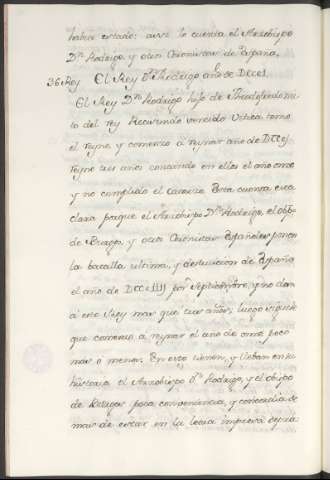 haber estado: assi lo cuenta el Arzobispo
Dn Rodrigo, y otros Coronistas de España,
36 Rey El Rey Dn Rodrigo año de DCCXI.
El Rey Dn Rodrigo hijo de Theudofredo nie
to del rey Recesvindo vencido Vitica tomo
el reyno y comenzo a reynar año de DCCXI
reyno tres años contando en ellos el año onze
y no cumplido el catorze Esta cuenta es
clara porque el Arzobispo Dn Rodrigo, el obpo
de Burgos, y otros Coronistas Españoles ponen
la batalla ultima, y destruicion de España
el año de DCCXIIII por Septiembre, y no dan
á este Rey mas que tres años; luego siguese
que comenzo a reynar el año de onze poco
mas o menos. En esto tienen, y llevan en su
historia el Arzobispo Dn Rodrigo, y el obispo
de Burgos poca conveniencia, y concordia de
mas de estar en la letra impresa depra-